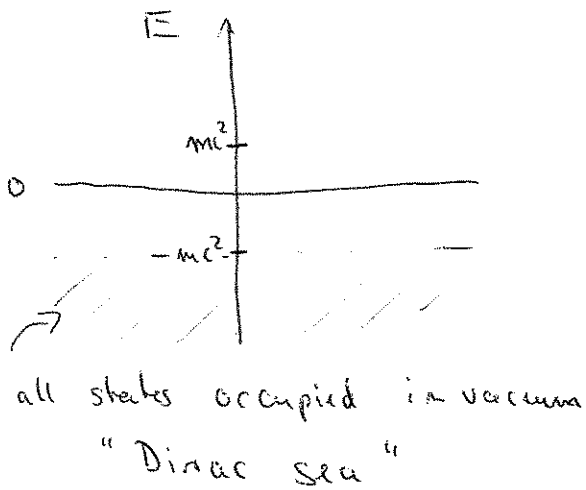 E
mc²
0
-mc²
all states occupied in vacuum
"Dirac sea"